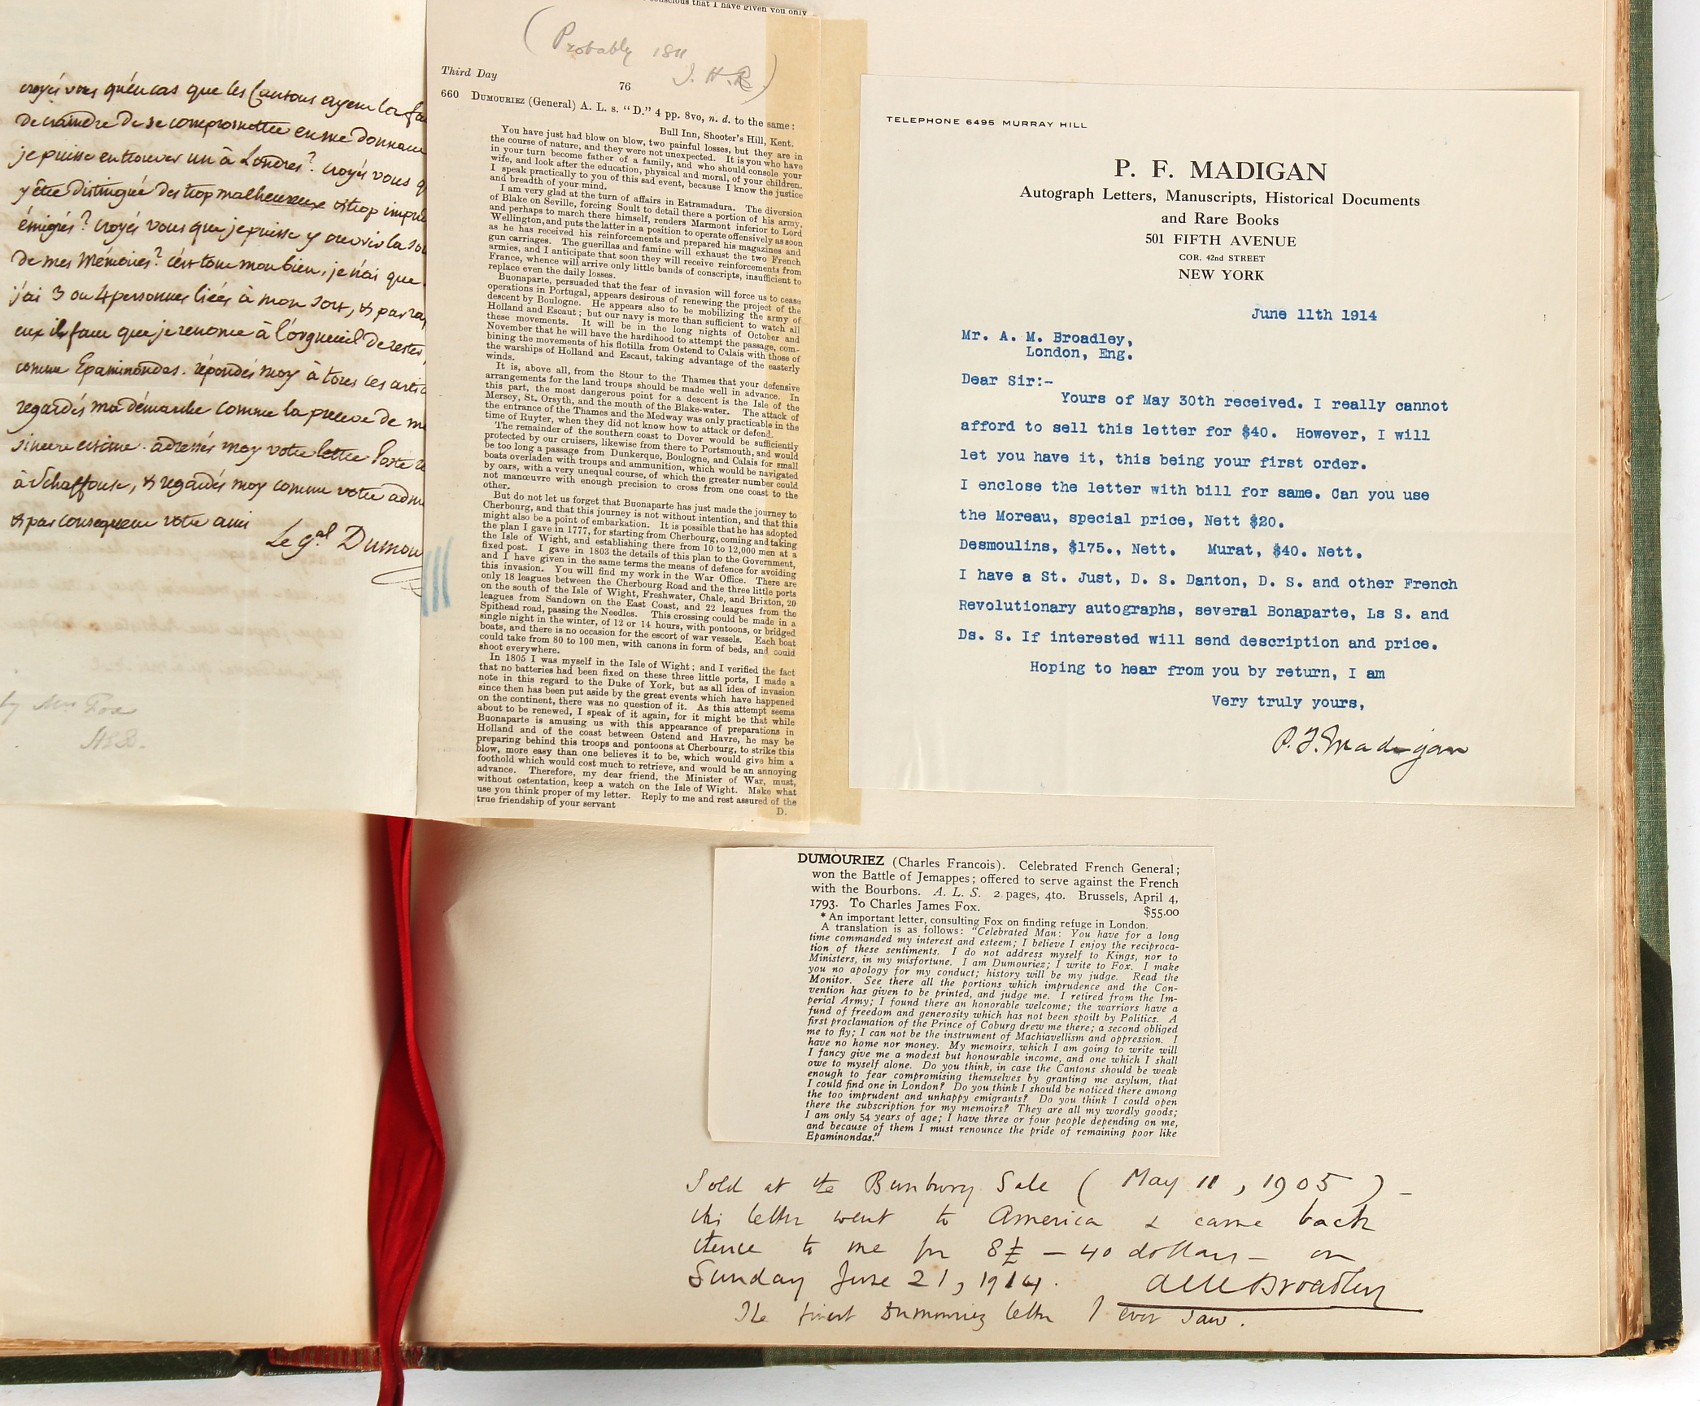 croyés vous qu'en cas que les Cantons ayent la
de craindre de se compromettre en me donnant
je puisse en trouver un à Londres? croyés vous
y être distingué des trop malheureux & trop
émigrés? croyés vous que je puisse y ouvrir la
de mes Mémoires? c'est tout mon bien, je n'ai que
j'ai 3 ou 4 personnes liées à mon sort, & par
eux il faut que je renonce à l'orgueil de rester
comme Epaminondas. répondés moy à tous ces
regardés ma démarche comme la preuve de
sincere estime. adressés moy votre lettre Poste
à Schaffouse, & regardés moy comme votre
& par consequent votre ami
Le gal Dumou
by Mrs Fox
conscious that I have given you only
(Probably 1811
J. H. R.)
Third Day
76
660 DUMOURIEZ (General) A. L. s. "D." 4 pp. 8vo, n. d. to the same:
Bull Inn, Shooter's Hill, Kent.
You have just had blow on blow, two painful losses, but they are in
the course of nature, and they were not unexpected. It is you who have
in your turn become father of a family, and who should console your
wife, and look after the education, physical and moral, of your children.
I speak practically to you of this sad event, because I know the justice
and breadth of your mind.
I am very glad at the turn of affairs in Estramadura. The diversion
of Blake on Seville, forcing Soult to detail there a portion of his army,
and perhaps to march there himself, renders Marmont inferior to Lord
Wellington, and puts the latter in a position to operate offensively as soon
as he has received his reinforcements and prepared his magazines and
gun carriages. The guerillas and famine will exhaust the two French
armies, and I anticipate that soon they will receive reinforcements from
France, whence will arrive only little bands of conscripts, insufficient to
replace even the daily losses.
Buonaparte, persuaded that the fear of invasion will force us to cease
operations in Portugal, appears desirous of renewing the project of the
descent by Boulogne. He appears also to be mobilizing the army of
Holland and Escaut; but our navy is more than sufficient to watch all
these movements. It will be in the long nights of October and
November that he will have the hardihood to attempt the passage, com-
bining the movements of his flotilla from Ostend to Calais with those of
the warships of Holland and Escaut, taking advantage of the easterly
winds.
It is, above all, from the Stour to the Thames that your defensive
arrangements for the land troops should be made well in advance. In
this part, the most dangerous point for a descent is the Isle of the
Mersey, St. Orsyth, and the mouth of the Blake-water. The attack of
the entrance of the Thames and the Medway was only practicable in the
time of Ruyter, when they did not know how to attack or defend.
The remainder of the southern coast to Dover would be sufficiently
protected by our cruisers, likewise from there to Portsmouth, and would
be too long a passage from Dunkerque, Boulogne, and Calais for small
boats overladen with troops and ammunition, which would be navigated
by oars, with a very unequal course, of which the greater number could
not manœuvre with enough precision to cross from one coast to the
other.
But do not let us forget that Buonaparte has just made the journey to
Cherbourg, and that this journey is not without intention, and that this
might also be a point of embarkation. It is possible that he has adopted
the plan I gave in 1777, for starting from Cherbourg, coming and taking
the Isle of Wight, and establishing there from 10 to 12,000 men at a
fixed post. I gave in 1803 the details of this plan to the Government,
and I have given in the same terms the means of defence for avoiding
this invasion. You will find my work in the War Office. There are
only 18 leagues between the Cherbourg Road and the three little ports
on the south of the Isle of Wight, Freshwater, Chale, and Brixton, 20
leagues from Sandown on the East Coast, and 22 leagues from the
Spithead road, passing the Needles. This crossing could be made in a
single night in the winter, of 12 or 14 hours, with pontoons, or bridged
boats, and there is no occasion for the escort of war vessels. Each boat
could take from 80 to 100 men, with canons in form of beds, and could
shoot everywhere.
In 1805 I was myself in the Isle of Wight; and I verified the fact
that no batteries had been fixed on these three little ports, I made a
note in this regard to the Duke of York, but as all idea of invasion
since then has been put aside by the great events which have happened
on the continent, there was no question of it. As this attempt seems
about to be renewed, I speak of it again, for it might be that while
Buonaparte is amusing us with this appearance of preparations in
Holland and of the coast between Ostend and Havre, he may be
preparing behind this troops and pontoons at Cherbourg, to strike this
blow, more easy than one believes it to be, which would give him a
foothold which would cost much to retrieve, and would be an annoying
advance. Therefore, my dear friend, the Minister of War, must,
without ostentation, keep a watch on the Isle of Wight. Make what
use you think proper of my letter. Reply to me and rest assured of the
true friendship of your servant
D.
TELEPHONE 6495 MURRAY HILL
P. F. MADIGAN
Autograph Letters, Manuscripts, Historical Documents
and Rare Books
501 FIFTH AVENUE
COR. 42nd STREET
NEW YORK
June 11th 1914
Mr. A. M. Broadley,
London, Eng.
Dear Sir:-
Yours of May 30th received. I really cannot
afford to sell this letter for $40. However, I will
let you have it, this being your first order.
I enclose the letter with bill for same. Can you use
the Moreau, special price, Nett $20.
Desmoulins, $175., Nett. Murat, $40. Nett.
I have a St. Just, D. S. Danton, D. S. and other French
Revolutionary autographs, several Bonaparte, Ls S. and
Ds. S. If interested will send description and price.
Hoping to hear from you by return, I am
Very truly yours,
P. F. Madigan
DUMOURIEZ (Charles Francois). Celebrated French General;
won the Battle of Jemappes; offered to serve against the French
with the Bourbons. A. L. S. 2 pages, 4to. Brussels, April 4,
1793. To Charles James Fox. $55.00
* An important letter, consulting Fox on finding refuge in London.
A translation is as follows: "Celebrated Man: You have for a long
time commanded my interest and esteem; I believe I enjoy the reciproca-
tion of these sentiments. I do not address myself to Kings, nor to
Ministers, in my misfortune. I am Dumouriez; I write to Fox. I make
you no apology for my conduct; history will be my judge. Read the
Monitor. See there all the portions which imprudence and the Con-
vention has given to be printed, and judge me. I retired from the Im-
perial Army; I found there an honorable welcome; the warriors have a
fund of freedom and generosity which has not been spoilt by Politics. A
first proclamation of the Prince of Coburg drew me there; a second obliged
me to fly; I can not be the instrument of Machiavellism and oppression. I
have no home nor money. My memoirs, which I am going to write will
I fancy give me a modest but honourable income, and one which I shall
owe to myself alone. Do you think, in case the Cantons should be weak
enough to fear compromising themselves by granting me asylum, that
I could find one in London? Do you think I should be noticed there among
the too imprudent and unhappy emigrants? Do you think I could open
there the subscription for my memoirs? They are all my wordly goods;
I am only 54 years of age; I have three or four people depending on me,
and because of them I must renounce the pride of remaining poor like
Epaminondas."
Sold at the Bunbury Sale (May 11, 1905) -
this letter went to America & came back
thence to me for 8£ - 40 dollars - on
Sunday June 21, 1914. A M Broadley
The finest Dumouriez letter I ever saw.